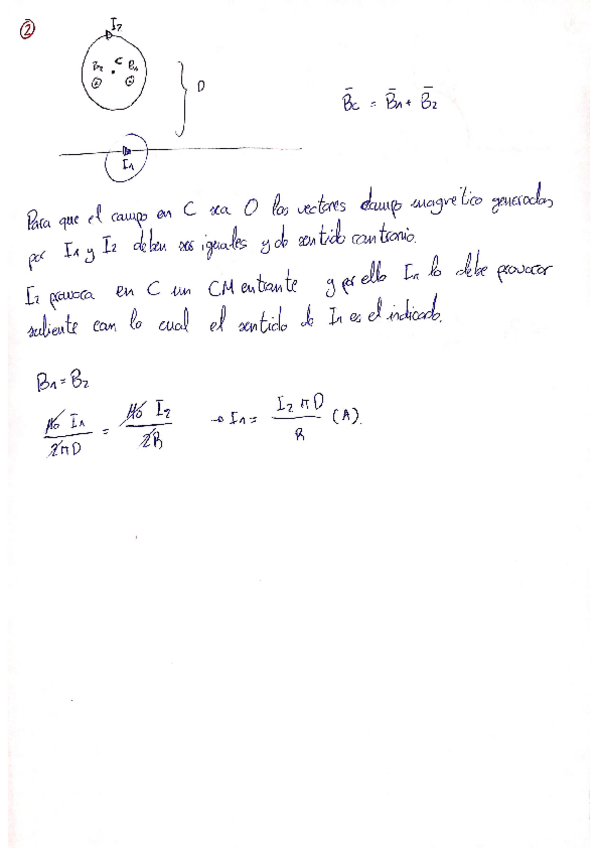 ②
I₂
B₂ C B₁
D
I₁
B̄c = B̄₁ + B̄₂
Para que el campo en C sea 0 los vectores campo magnético generados
por I₁ y I₂ deben ser iguales y de sentido contrario.
I₂ provoca en C un CM entrante y por ello I₁ lo debe provocar
saliente con lo cual el sentido de I₁ es el indicado.
B₁ = B₂
μ₀ I₁ / 2πD = μ₀ I₂ / 2R → I₁ = I₂ πD / R (A).